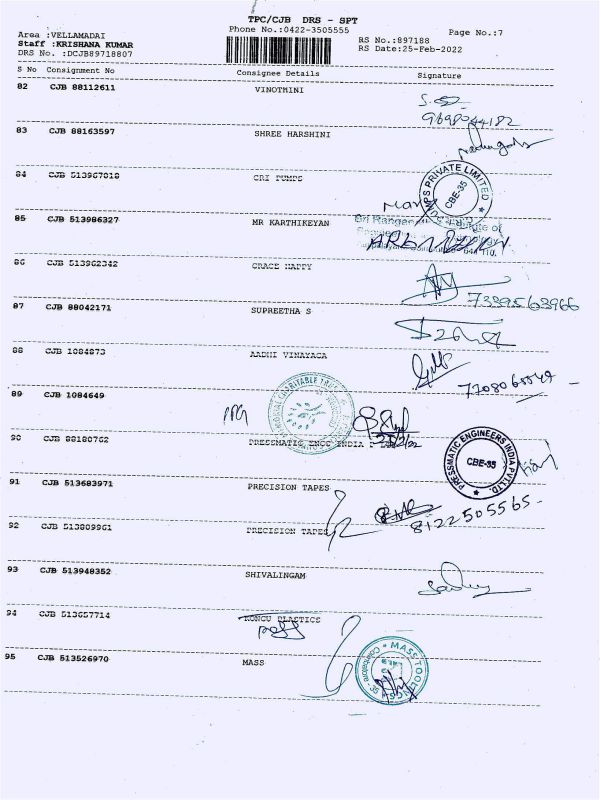 TPC/CJB DRS - SPT
Area :VELLAMADAI
Phone No.:0422-3505555
Page No.:7
Staff :KRISHANA KUMAR
RS No.:897188
DRS No. :DCJB89718807
RS Date:25-Feb-2022
S No Consignment No Consignee Details Signature
82 CJB 88112611 VINOTHINI
9698044182
83 CJB 88163597 SHREE HARSHINI
84 CJB 513967018 CRI PUMPS
PUMPS PRIVATE LIMITED
CBE-35
85 CJB 513986327 MR KARTHIKEYAN
86 CJB 513962342 GRACE HAPPY
7339563966
87 CJB 88042171 SUPREETHA S
88 CJB 1084873 AADHI VINAYAGA
89 CJB 1084649
CHARITABLE TRUST
90 CJB 88180762 PRESSMATIC ENGG INDIA P
PRESSMATIC ENGINEERS INDIA PVT LTD.
CBE-35
91 CJB 513683971 PRECISION TAPES
8122505565
92 CJB 513809961 PRECISION TAPES
93 CJB 513948352 SHIVALINGAM
94 CJB 513657714 KONGU PLASTICS
95 CJB 513526970 MASS
MASS TOOLINGS
Coimbatore - 35